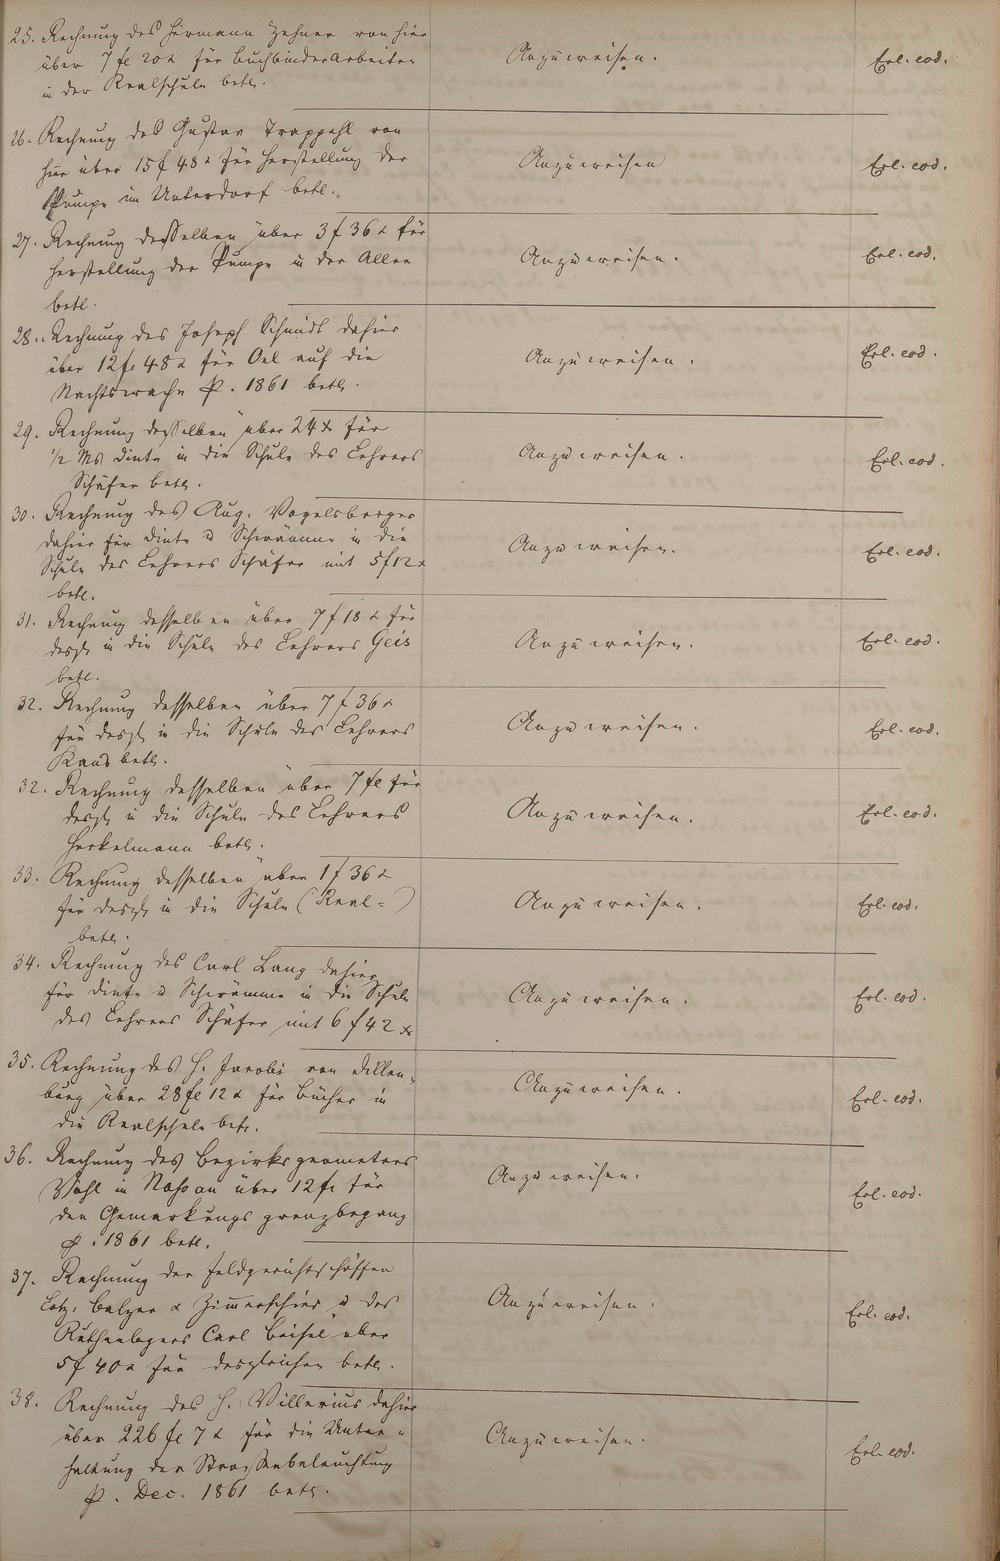 25. Rechnung des Hermann Zehner von hier
über 7 fl 20 x für Buchbinderarbeiten
in der Realschule betr.
Anzuweisen.
Erl. eod.
26. Rechnung des Gustav Trappehl von
hier über 15 f 48 x für Herstellung der
Pumpe im Unterdorf betr.
Anzuweisen
Erl. eod.
27. Rechnung desselben über 3 f 36 x für
Herstellung der Pumpe in der Allee
betr.
Anzuweisen.
Erl. eod.
28. Rechnung des Joseph Schmidt dahier
über 12 fl 48 x für Oel auf die
Nachtswache p. 1861 betr.
Anzuweisen.
Erl. eod.
29. Rechnung desselben über 24 x für
1/2 Ms Dinte in die Schule des Lehrers
Schäfer betr.
Anzuweisen.
Erl. eod.
30. Rechnung des Aug. Vogelsberger
dahier für Dinte u Schwämme in die
Schule des Lehrers Schäfer mit 5 f 12 x
betr.
Anzuweisen.
Erl. eod.
31. Rechnung desselben über 7 f 18 x für
desgl. in die Schule des Lehrers Geis
betr.
Anzuweisen.
Erl. eod.
32. Rechnung desselben über 7 f 36 x
für desgl. in die Schule des Lehrers
Kaus betr.
Anzuweisen.
Erl. eod.
32. Rechnung desselben über 7 fl für
desgl. in die Schule des Lehrers
Herkelmann betr.
Anzuweisen.
Erl. eod.
33. Rechnung desselben über 1 f 36 x
für desgl. in die Schule (Real-)
betr.
Anzuweisen.
Erl. eod.
34. Rechnung des Carl Lang dahier
für Dinte u Schwämme in die Schule
des Lehrers Schäfer mit 6 f 42 x
Anzuweisen.
Erl. eod.
35. Rechnung des H. Jacobi von Dillen-
burg über 28 fl 12 x für Bücher in
die Realschule betr.
Anzuweisen.
Erl. eod.
36. Rechnung des Bezirksgeometers
Vohl in Nassau über 12 fl für
den Gemarkungsgrenzbegang
p. 1861 betr.
Anzuweisen.
Erl. eod.
37. Rechnung der Feldgerichtsschöffen
Lotz, Balzer & Zimmerschied u des
Ruthenlegers Carl Beisel über
5 f 40 x für desgleichen betr.
Anzuweisen.
Erl. eod.
38. Rechnung des H. Villerius dahier
über 226 fl 7 x für die Unter-
haltung der Strassenbeleuchtung
p. Dec. 1861 betr.
Anzuweisen.
Erl. eod.